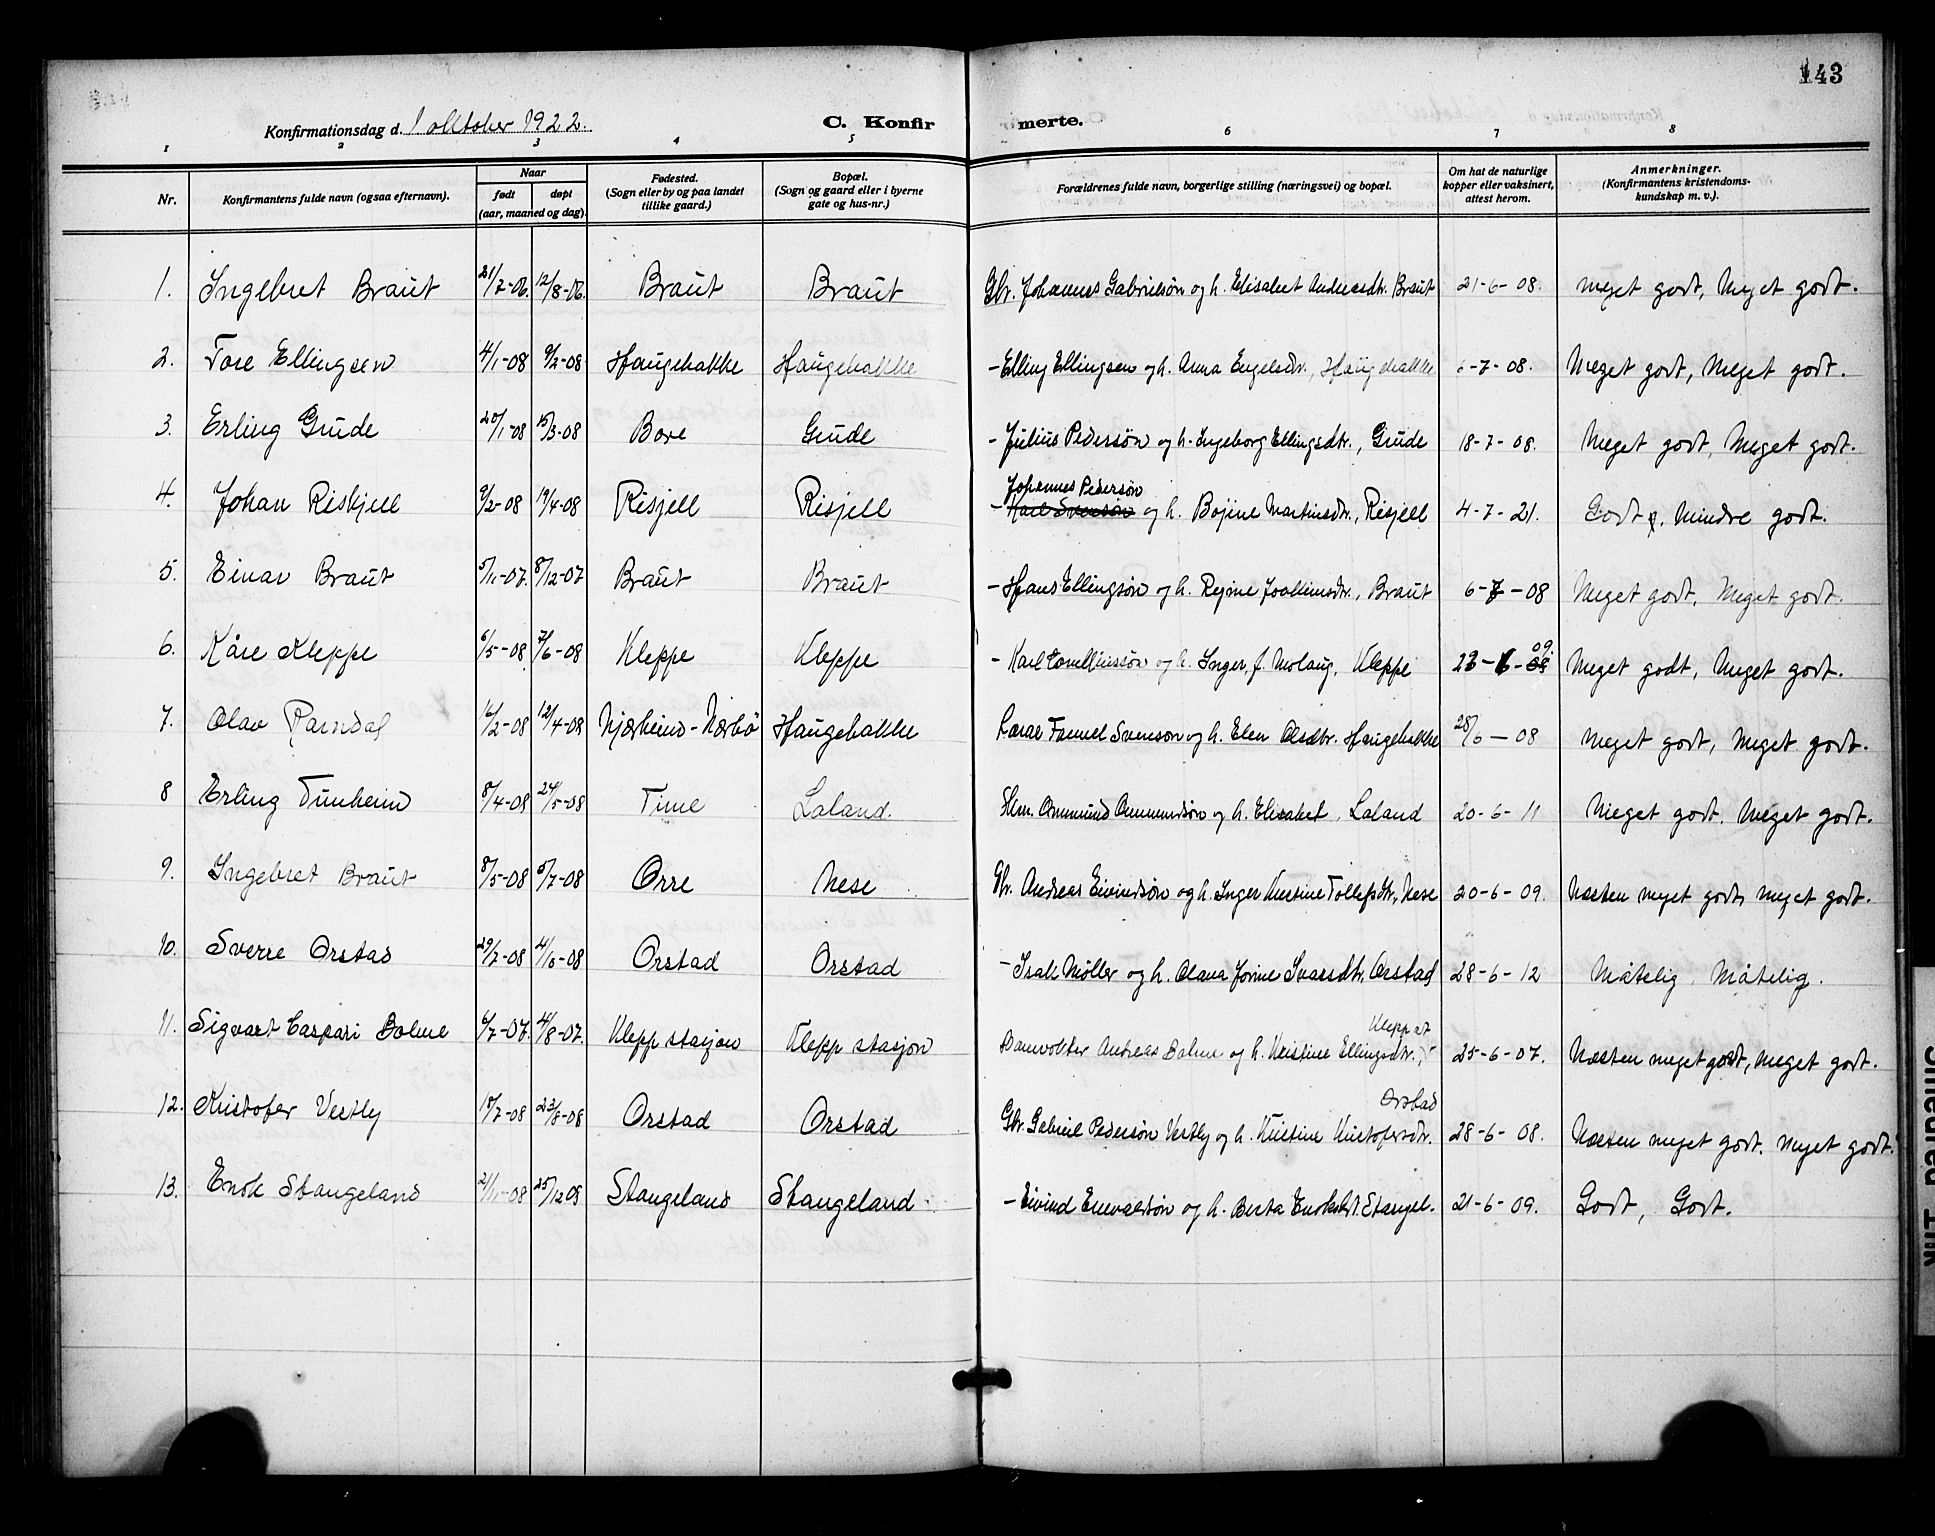 143
Konfirmationsdag d. 1 oktober 1922. C. Konfirmerte.
1 2 3 4 5 6 7 8
Nr. Konfirmantens fulde navn (ogsaa efternavn). Naar født døpt (aar, maaned og dag). Fødested. (Sogn eller by og paa landet tillike gaard.) Bopæl. (Sogn og gaard eller i byerne gate og hus-nr.) Forældrenes fulde navn, borgerlige stilling (næringsvei) og bopæl. Om hat de naturlige kopper eller vaksinert, attest herom. Anmerkninger. (Konfirmantens kristendomskundskap m. v.).
1. Ingebret Braut 21/7-06. 12/8-06. Braut Braut Gbr. Johannes Gabrielsøn og h. Elisabet Andreasdtr. Braut 21-6-08. meget godt, Meget godt.
2. Tore Ellingsen 4/1-08 9/2-08 Haugebakke Haugebakke - Elling Ellingsen og h. Anna Engelsdtr., Haugebakke 6-7-08. Meget godt, Meget godt.
3. Erling Grude 20/1-08 15/3-08 Bore Grude - Julius Pedersøn og h. Ingeborg Ellingsdtr., Grude 18-7-08. Meget godt, Meget godt.
Johannes Pedersøn
4. Johan Riskjell 9/2-08 19/4-08 Risjell Risjell - Karl Svensøn og h. Bojine Martinsdtr., Risjell 4-7-21. Godt, Mindre godt.
5. Einar Braut 5/11-07. 8/12-07 Braut Braut - Hans Ellingsøn og h. Rejine Joakimsdtr., Braut 6-7-08 Meget godt, Meget godt.
09.
6. Kåre Kleppe 6/5-08 7/6-08 Kleppe Kleppe - Karl h. Inger f. Molaug, Kleppe 23-6-08 Meget godt, Meget godt.
7. Olav Ramdal 16/2-08 12/4-08 Njærheim-Nærbø Haugebakke Svensøn og h. Elen Olsdtr. Haugebakke 28/6-08 meget godt, Meget godt.
8 Erling Tunheim 8/4-08 24/5-08 Time Laland. Ommund Ommundsøn og h. Elisabet, Laland 20-6-11 Meget godt. Meget godt.
9. Ingebret Braut 8/5-08 5/7-08 Orre Nese Gbr. Andreas Eivindsøn og h. Inger Kristine Tollefsdtr., Nese 20-6-09. Næsten meget godt, meget godt.
10. Sverre Orstad 29/7-08 4/10-08 Orstad Orstad - Isak Møller og h. Olava Jorine Ivarsdtr. Orstad 28-6-12 Måtelig, Måtelig.
Klepp st
11. Sigvart Caspari Bolme 6/7-07. 4/8-07. Klepp stasjon Klepp stasjon Banevokter Andreas Bolme og h. Kristine Ellingsdtr., 25-6-07. Næsten meget godt, meget godt.
Orstad
12. Kristofer Vestly 18/7-08 23/8-08 Orstad Orstad Gbr. Gabriel Pedersøn Vestly og h. Kristine Kristofersdtr. 28-6-08. Næsten meget godt. Meget godt.
13. Enok Stangeland 21/11-08 25/12 08 Stangeland Stangeland - Eivind Enevaldsøn og h. Berta Enoksdt. Stangel. 21-6-09. Godt, Godt.